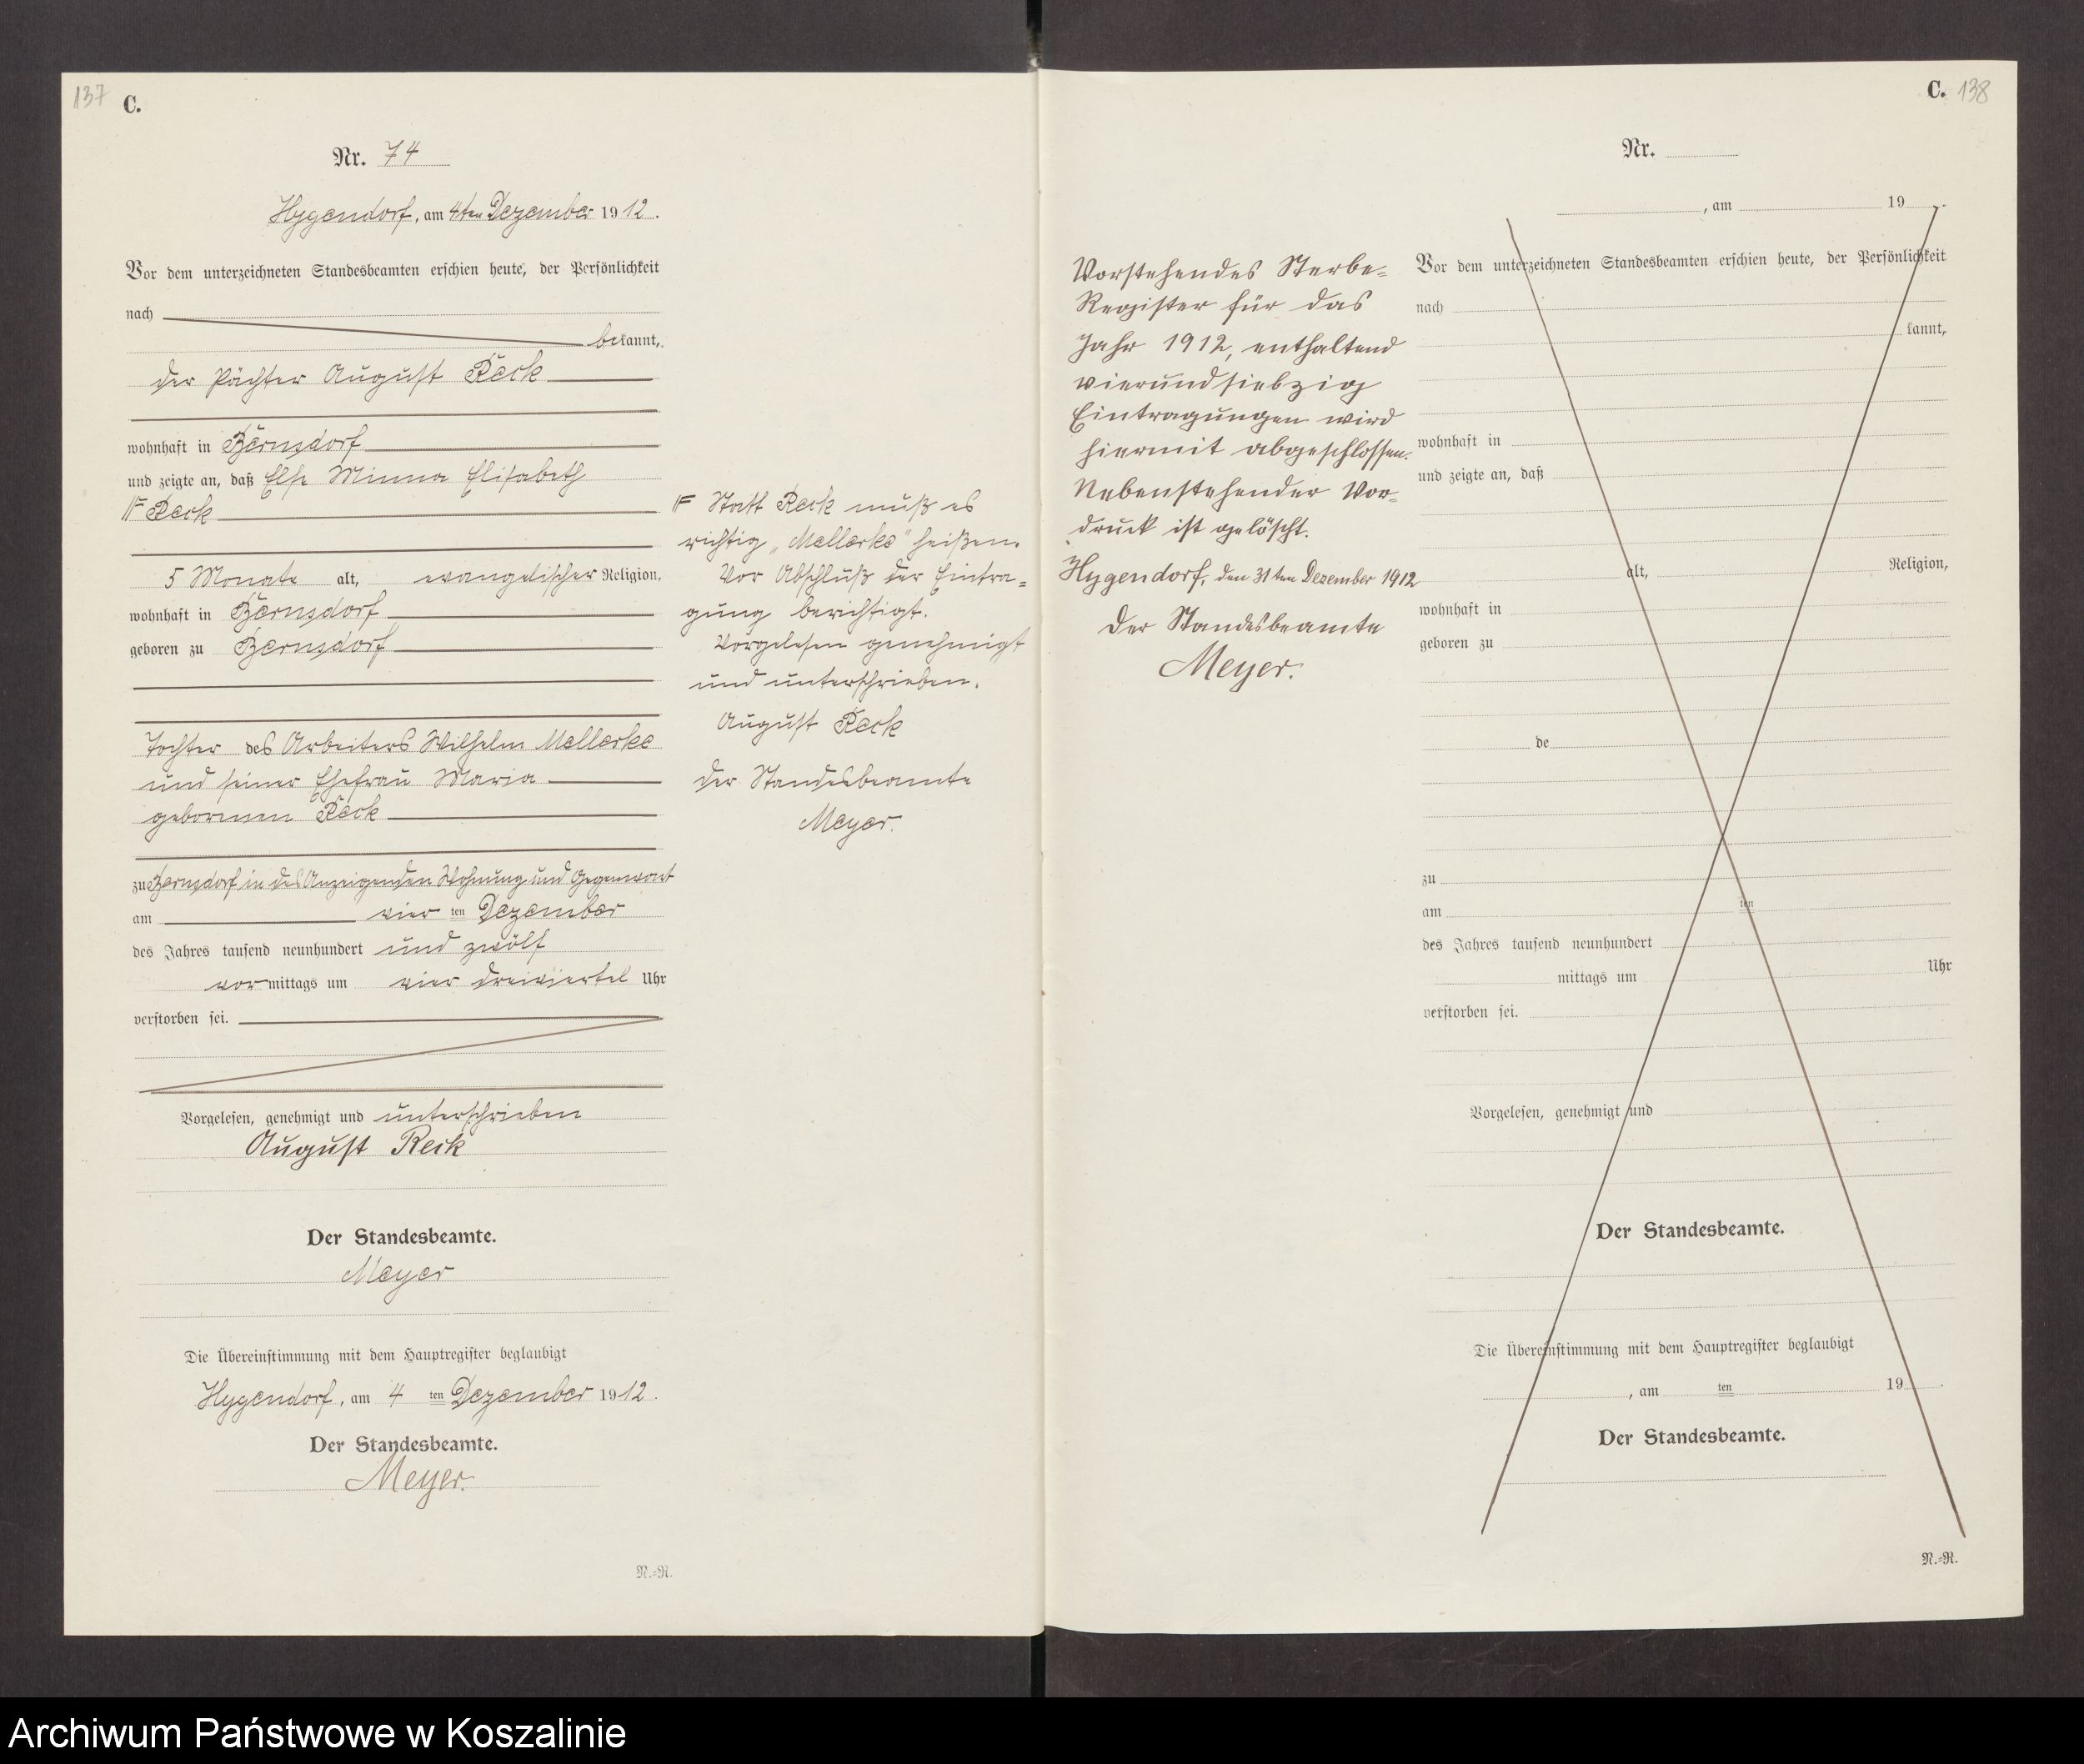 137
C.
Nr. 74
Hygendorf, am 4ten Dezember 1912.
Vor dem unterzeichneten Standesbeamten erschien heute, der Persönlichkeit
nach
bekannt,
der Pächter August Reck
wohnhaft in Bernsdorf
und zeigte an, daß Else Minna Elisabeth
Ͱ Reck
5 Monate alt, evangelischer Religion,
wohnhaft in Bernsdorf
geboren zu Bernsdorf
Tochter des Arbeiters Wilhelm Mellerke
und seiner Ehefrau Maria
geborenen Reck
zu Bernsdorf in des Anzeigenden Wohnung und Gegenwart
am vier ten Dezember
des Jahres tausend neunhundert und zwölf
vormittags um vier dreiviertel Uhr
verstorben sei.
Vorgelesen, genehmigt und unterschrieben
August Reck
Der Standesbeamte.
Meyer
Die Übereinstimmung mit dem Hauptregister beglaubigt
Hygendorf, am 4 ten Dezember 1912.
Der Standesbeamte.
Meyer.
N.=R.
Ͱ Statt Reck muß es
richtig „Mellerke" heißen.
Vor Abschluß der Eintra=
gung berichtigt.
Vorgelesen genehmigt
und unterschrieben.
August Reck
Der Standesbeamte
Meyer.
C. 138
Vorstehendes Sterbe=
Register für das
Jahr 1912, enthaltend
vierundsiebzig
Eintragungen wird
hiermit abgeschlossen.
Nebenstehender Vor=
druck ist gelöscht.
Hygendorf, den 31ten Dezember 1912
Der Standesbeamte
Meyer.
Nr.
, am 19 .
Vor dem unterzeichneten Standesbeamten erschien heute, der Persönlichkeit
nach
kannt,
wohnhaft in
und zeigte an, daß
alt, Religion,
wohnhaft in
geboren zu
de
zu
am ten
des Jahres tausend neunhundert
mittags um Uhr
verstorben sei.
Vorgelesen, genehmigt und
Der Standesbeamte.
Die Übereinstimmung mit dem Hauptregister beglaubigt
, am ten 19 .
Der Standesbeamte.
N.=R.
Archiwum Państwowe w Koszalinie